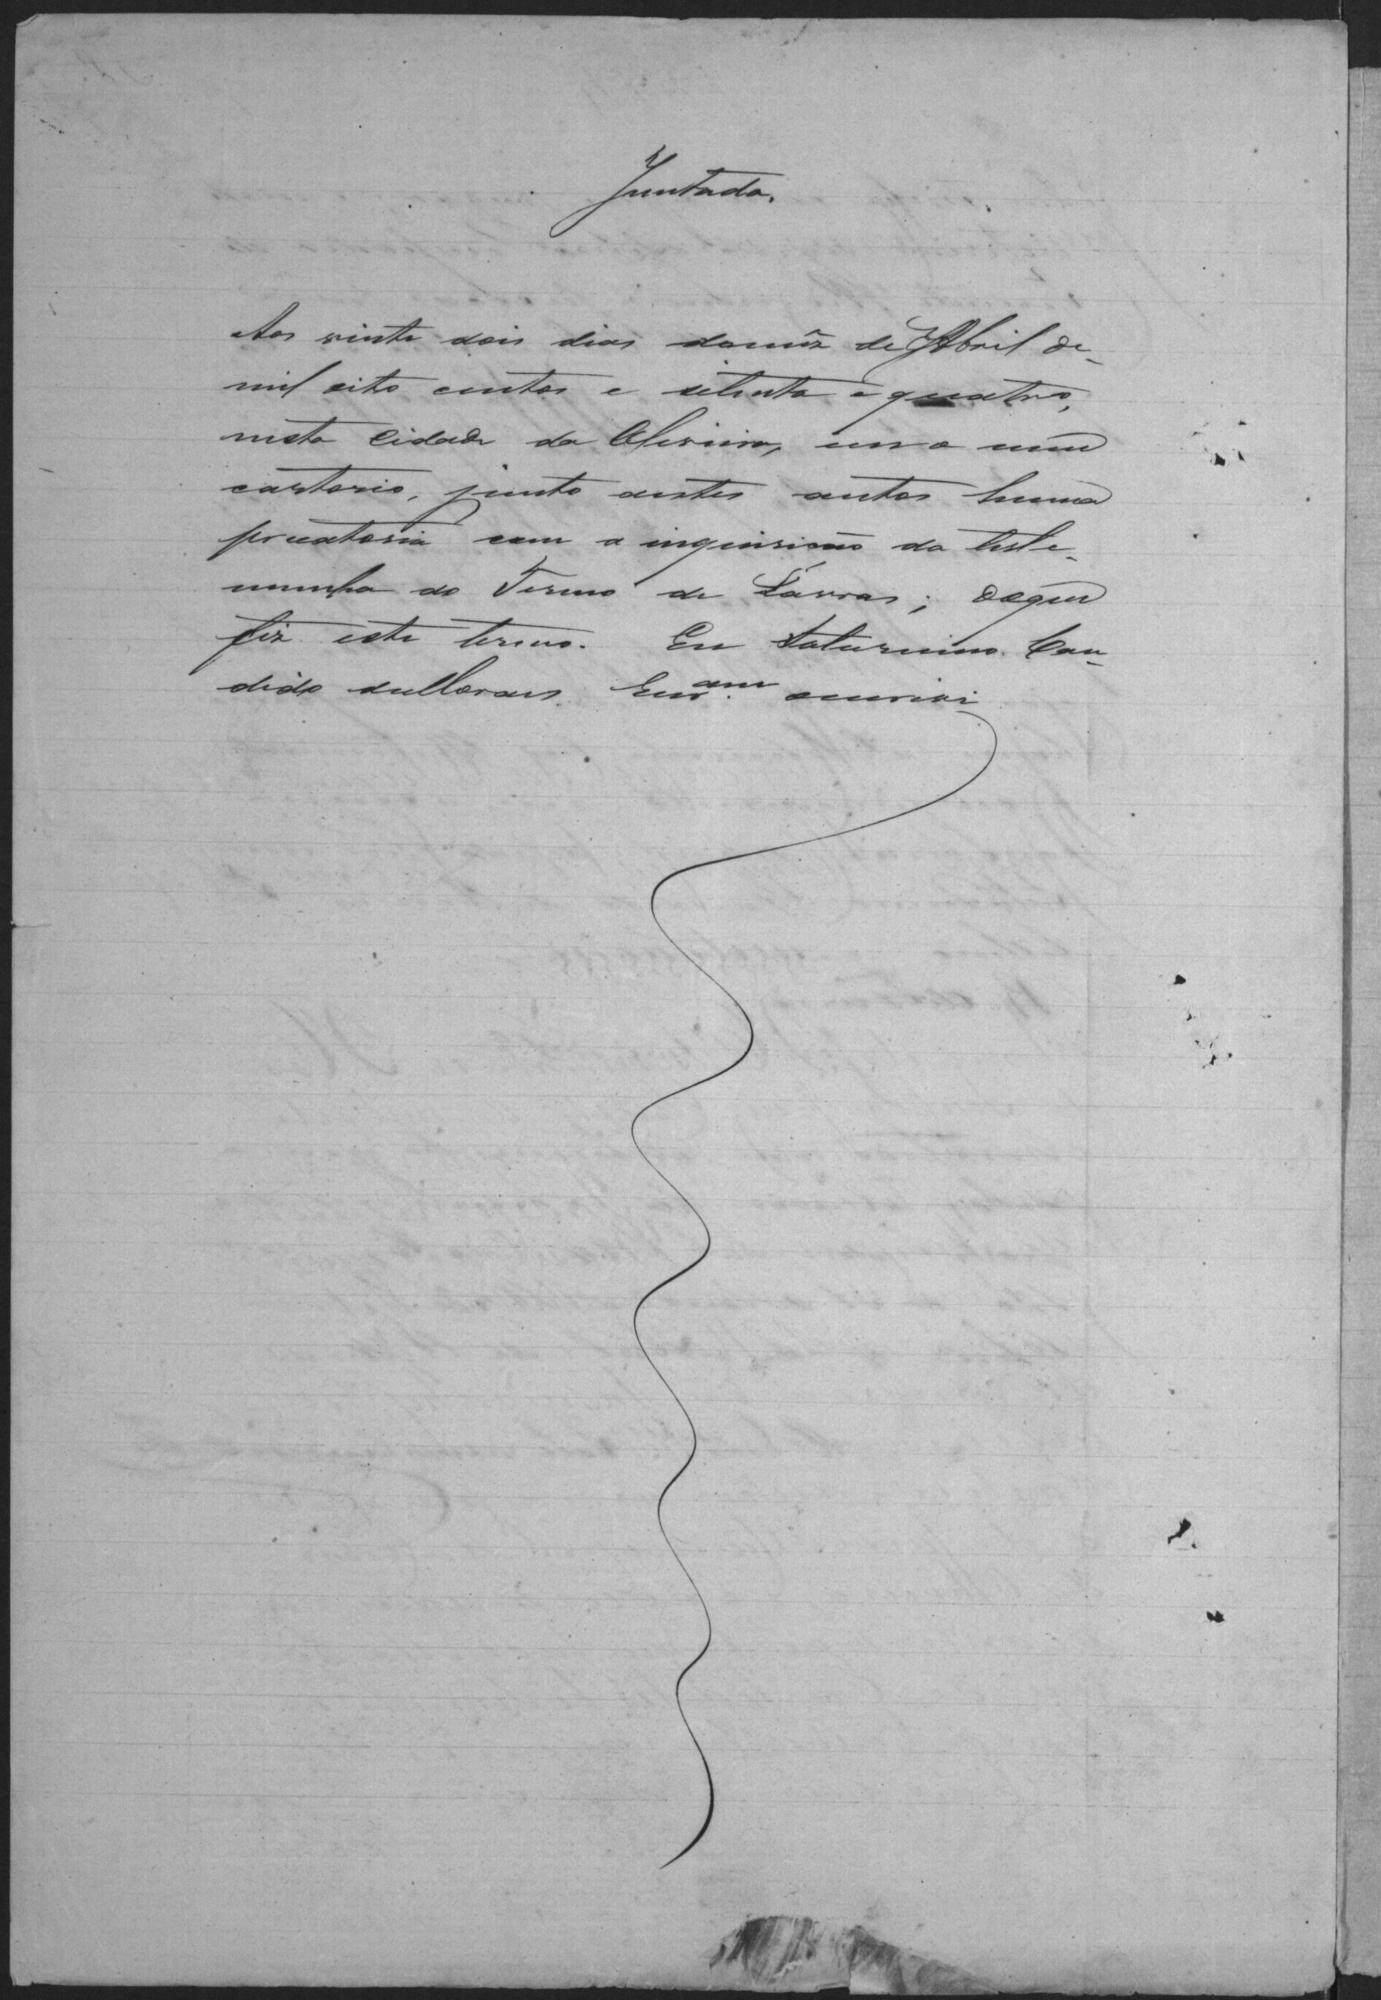 Juntada.
Aos vinte dois dias do mez de Abril de
mil oito centos e setenta e quatro,
nesta Cidade da Oliveira, em o meu
cartorio, junto a estes autos huma
precatoria com a inquirição da teste-
munha do Termo de Lavras; do que
fiz este termo. Eu Saturnino Can-
dido de Moraes Escr.am escrivi